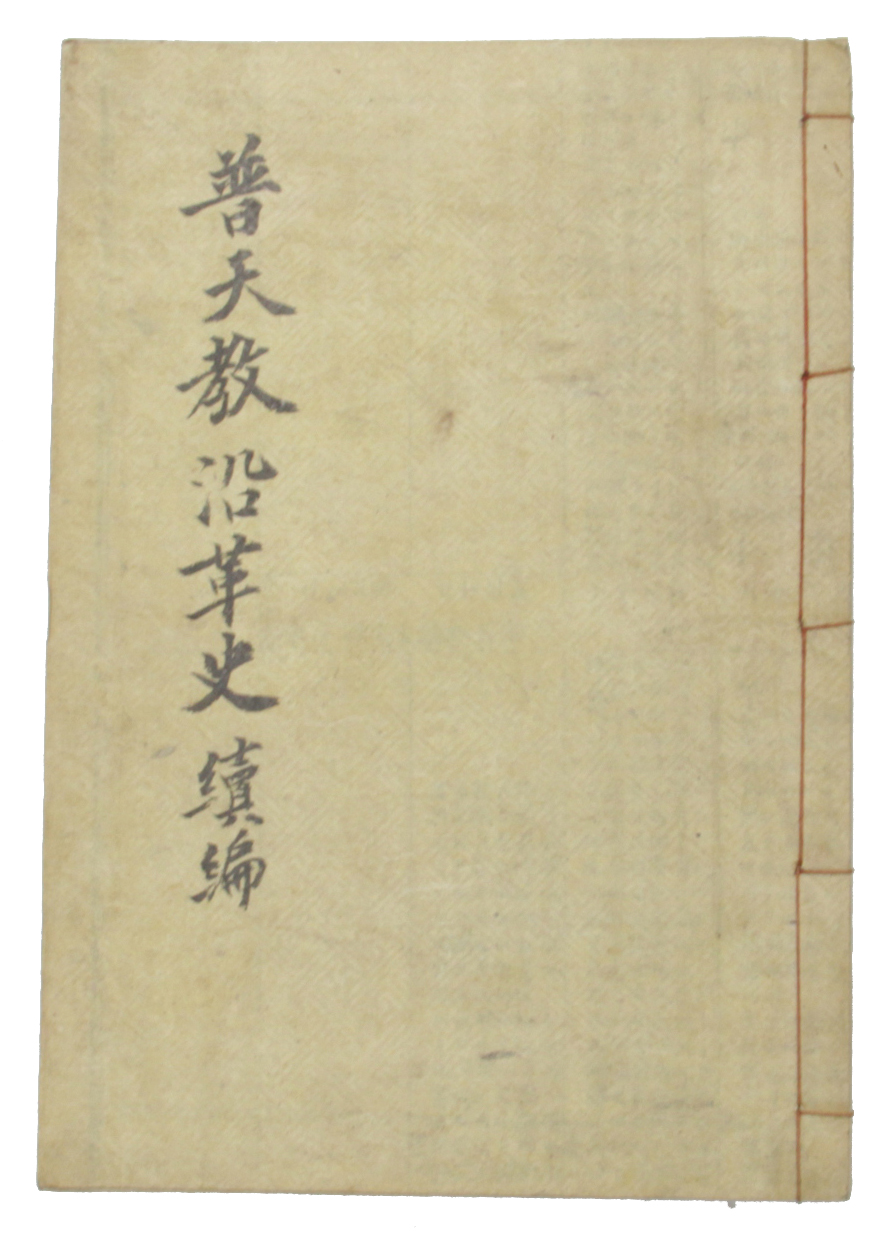 普天教沿革史續編